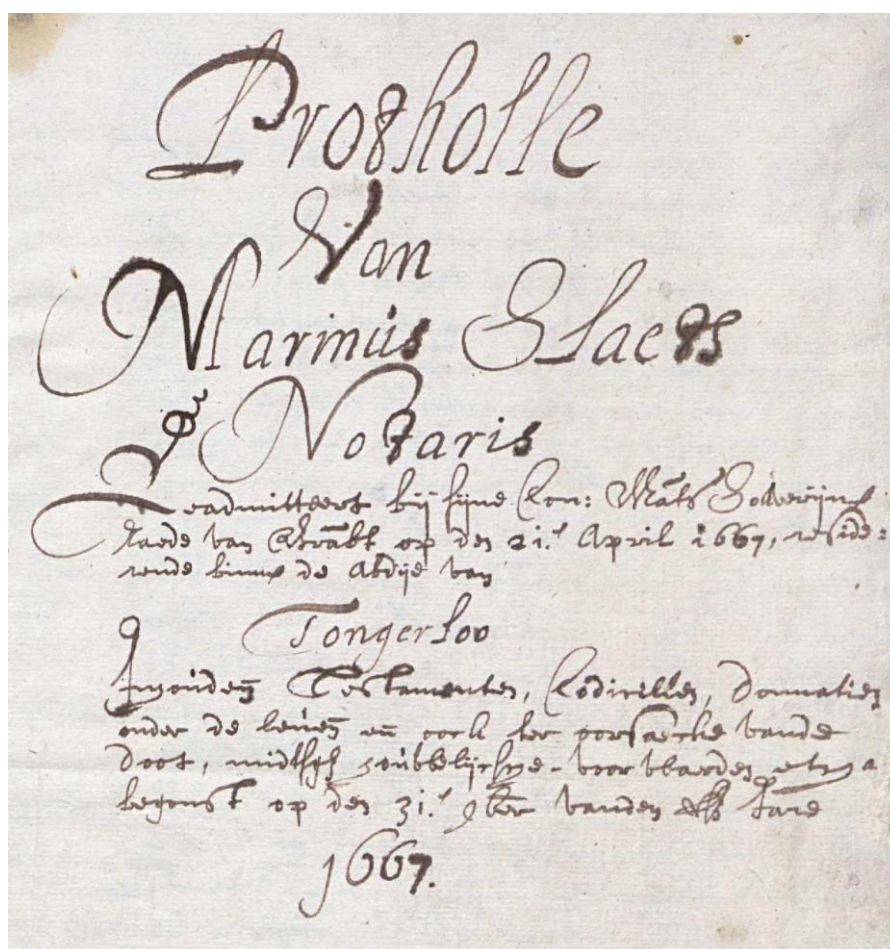 Protholle
Van
Marinus Slaets
Notaris
Geadmitteert bij sijne Con: Mats Soverijn
Raede van Brabt op den 21.e April 1667, reside=
rende binnen de Abdije van
Tongerloo
Inhouden Testamenten, Codicillen, Donnatien
onder de leven en oock ter oorsaecke vande
Doot, midtsgs houbbelijcksche voorwaerden etca
begonst op den 31.e 8ber vanden Jare
1667.